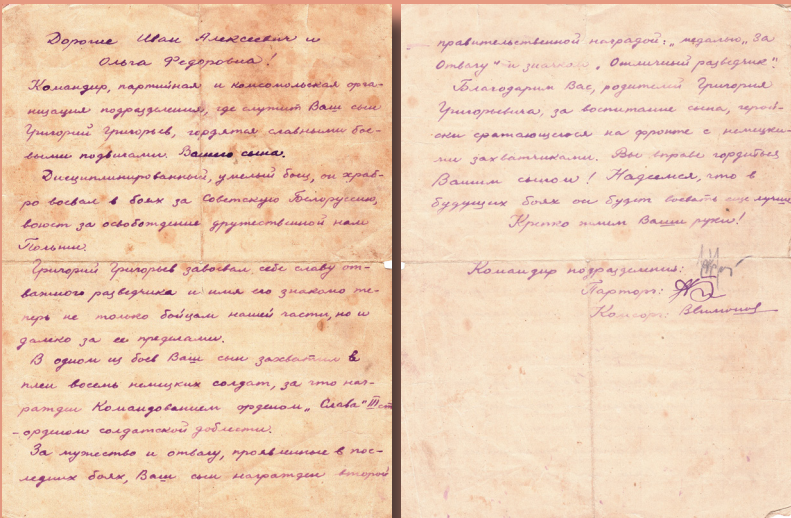 Дорогие Иван Алексеевич и
Ольга Федоровна!
Командир, партийная и комсомольская орга-
низация подразделения, где служит Ваш сын
Григорий Григорьев, гордятся славными бое-
выми подвигами Вашего сына.
Дисциплинированный, умелый боец, он храб-
ро воевал в боях за Советскую Белоруссию,
воюет за освобождение дружественной нам
Польши.
Григорий Григорьев завоевал себе славу от-
важного разведчика и имя его знакомо те-
перь не только бойцам нашей части, но и
далеко за ее пределами.
В одном из боев Ваш сын захватил в
плен восемь немецких солдат, за что наг-
ражден Командованием орденом „Слава" III ст
- орденом солдатской доблести.
За мужество и отвагу, проявленные в пос-
ледних боях, Ваш сын награжден второй
правительственной наградой: „медалью„ За
Отвагу" и значком „Отличный разведчик".
Благодарим Вас, родителей Григория
Григорьевича, за воспитание сына, герой-
ски сражающегося на фронте с немецки-
ми захватчиками. Вы вправе гордиться
Вашим сыном! Надеемся, что в
будущих боях он будет воевать еще лучше
Крепко жмем Ваши руки!
Командир подразделения:
Парторг:
Комсорг: